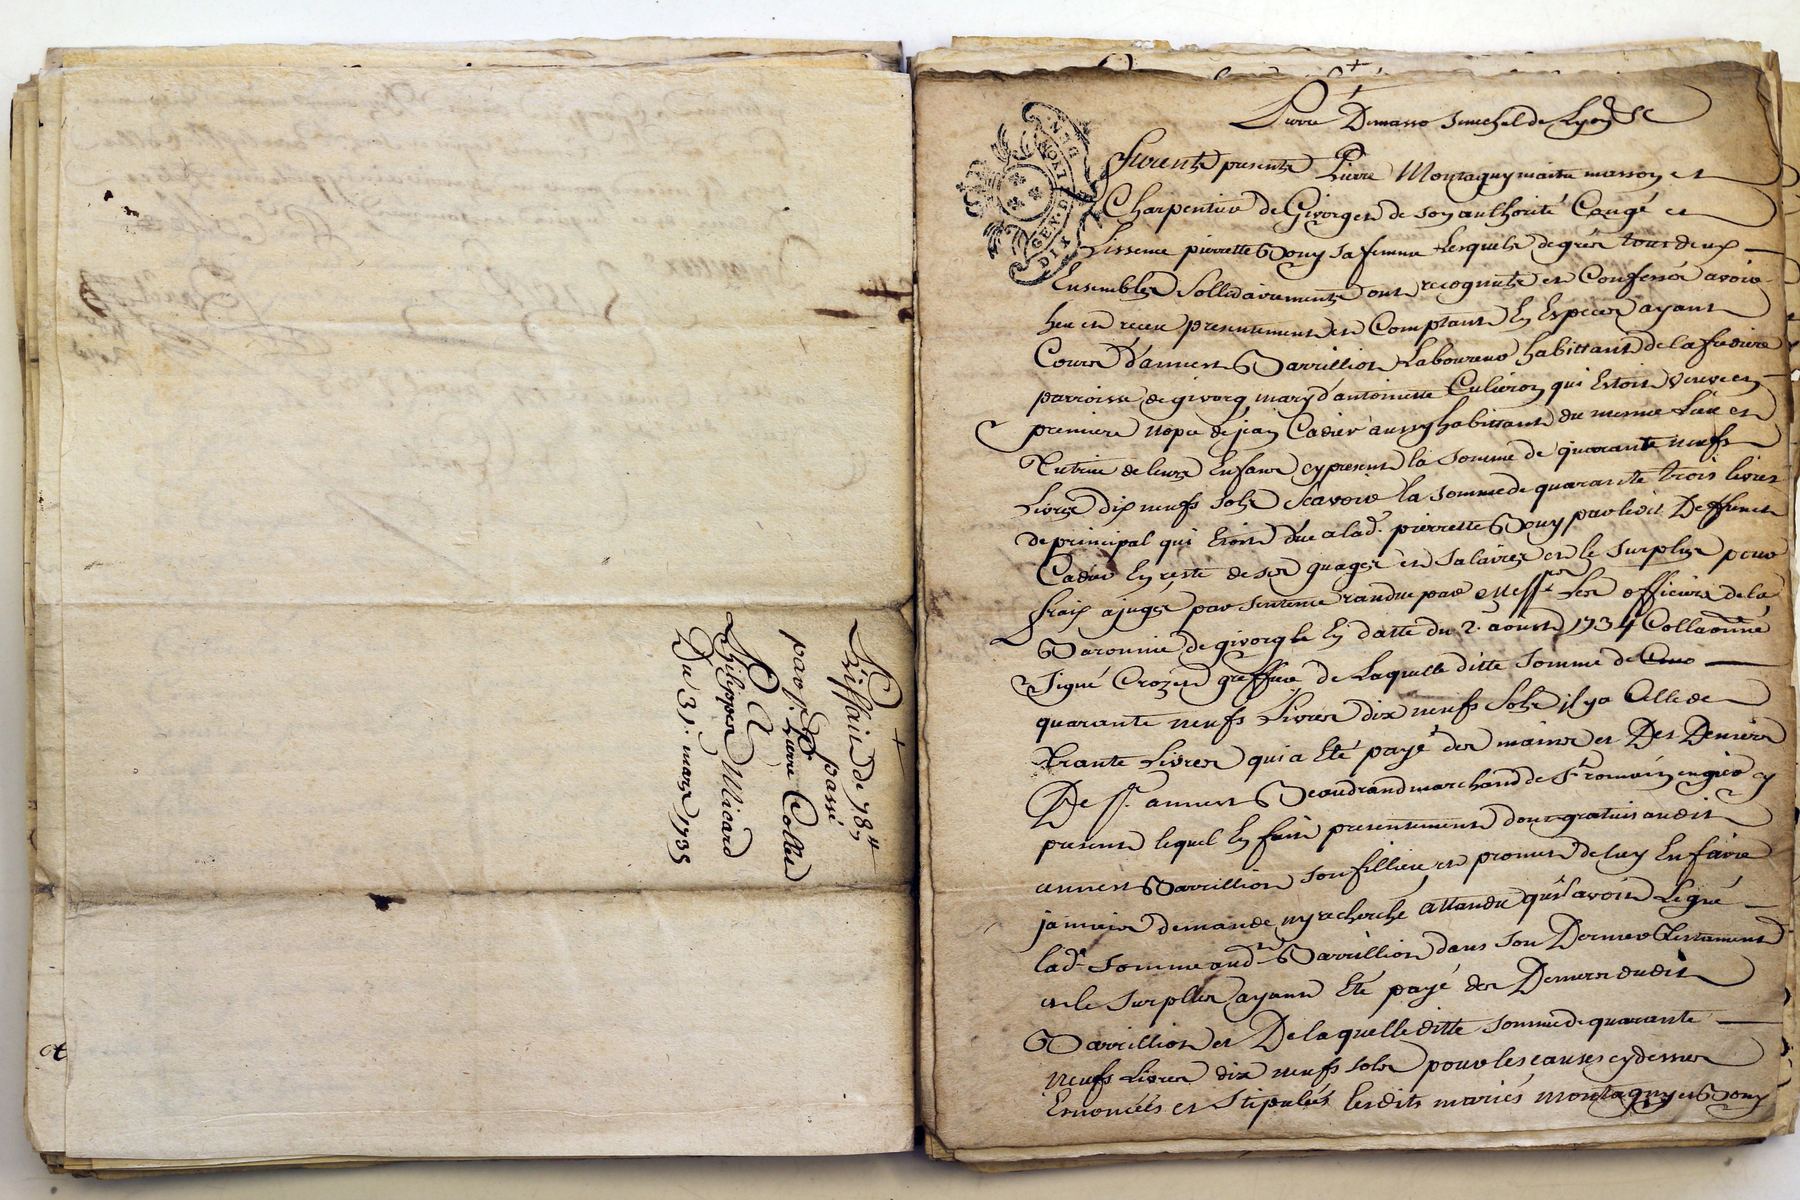 Quiffaict de 78ᵗᵗ
passé
par sʳ. Pierre Collet
a
Philippes Micard
Du 31. mars 1735
Pierre Demasso senechal de Lyon &c
GEN. DE LYON
DIX DEN.
furent presents Pierre Montagny maitre masson et
Charpentier de Givors et de son authorité Congé et
Lissence pierrette Bouy sa femme Lesquels de grés tous deux
Ensembles Sollidairements ont recognuts et Confessé avoir
heu et receu presentement et Comptant En Especes ayant
Cours d'annest Barrillion Laboureur habittant de la fredière
parroisse de givorq mary d'antoinette Culieron qui Estoit veuve en
premiere nopce de jean Cadier aussy habittant du mesme Lieu et
Tutrice de leurs Enfans cy present la somme de quarante neufs
Livres dix neufs sols scavoir la somme de quarante trois livres
de principal qui Etoit düe a lad. pierrette Bouy par ledit Deffunct
Cadier En reste de ses guages et salaires et le surplus pour
fraix ajugés par sentence randüe par Messʳˢ Les officiers de la
Baronnie de givorq le En datte du 2. aoust 1734 Collaonné
Signé Crozet greffier de Laquelle ditte somme de
quarante neufs Livres dix neufs sols il y a Celle de
Trante Livres qui a Eté payé des mains et Des Deniers
De sʳ. annest Beaudrand marchand de Sᵗ romain en giés cy
present lequel En fait presentement don gratuis audit
annest Barrillion son fillieu et promet de luy En faire
jamais demande ny recherche attandu qu'il avoit Legué
lad. somme aud. Barrillion dans son Dernier Testament
et le surplus ayant Eté payé des Deniers dudit
Barrillion et De laquelle ditte somme de quarante
neufs Livres dix neufs sols pour les causes cy dessus
Ennoncées et stipulés lesdits mariés montagny et Bouy